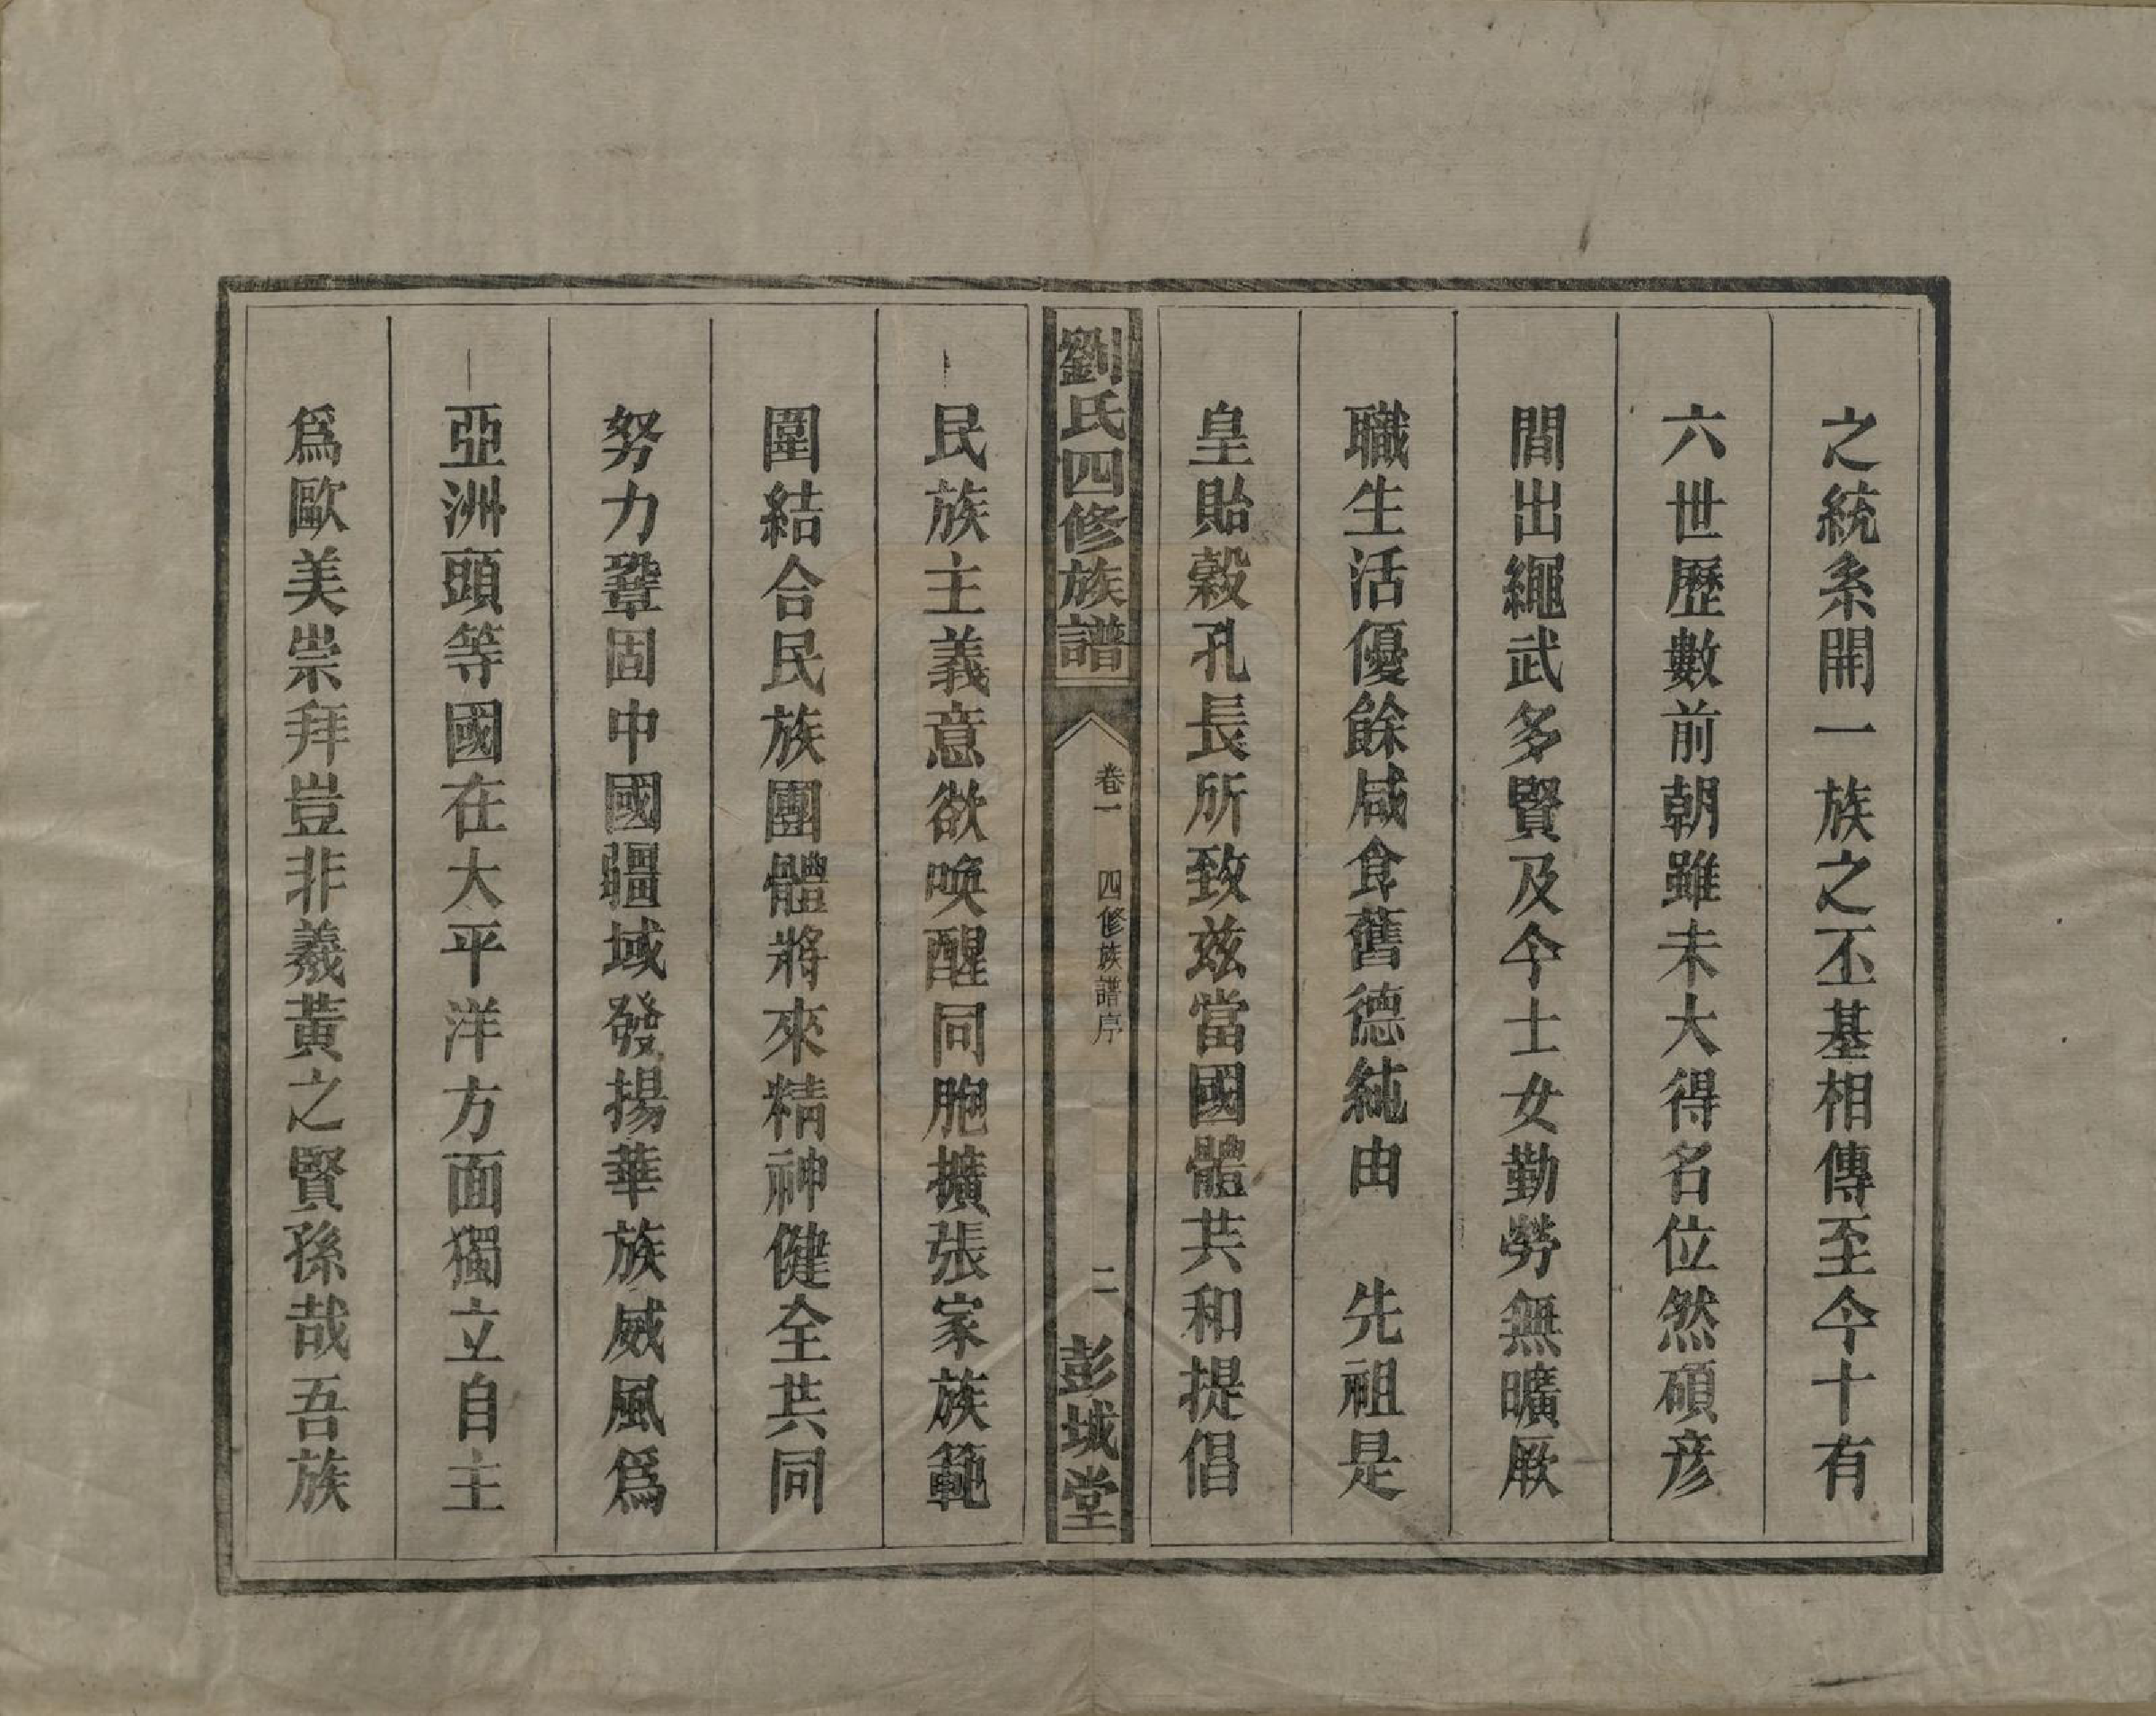 之統系開一族之丕基相傳至今十有
六世歷數前朝雖未大得名位然碩彦
間出繩武多賢及今士女勤勞無曠厥
職生活優餘咸食舊德純由　先祖是
皇貽穀孔長所致茲當國體共和提倡
劉氏四修族譜
卷一　四修族譜序　二
彭城堂
民族主義意欲喚醒同胞擴張家族範
圍結合民族團體將來精神健全共同
努力鞏固中國疆域發揚華族威風爲
亞洲頭等國在大平洋方面獨立自主
爲歐美崇拜豈非羲黃之賢孫哉吾族